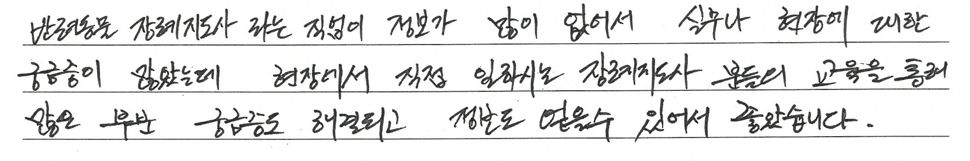 반려동물 장례지도사 라는 직업이 정보가 많이 없어서 실무나 현장에 대한
궁금증이 많았는데 현장에서 직접 일하시는 장례지도사 분들의 교육을 통해
많은 부분 궁금증도 해결되고 정보도 얻을수 있어서 좋았습니다.